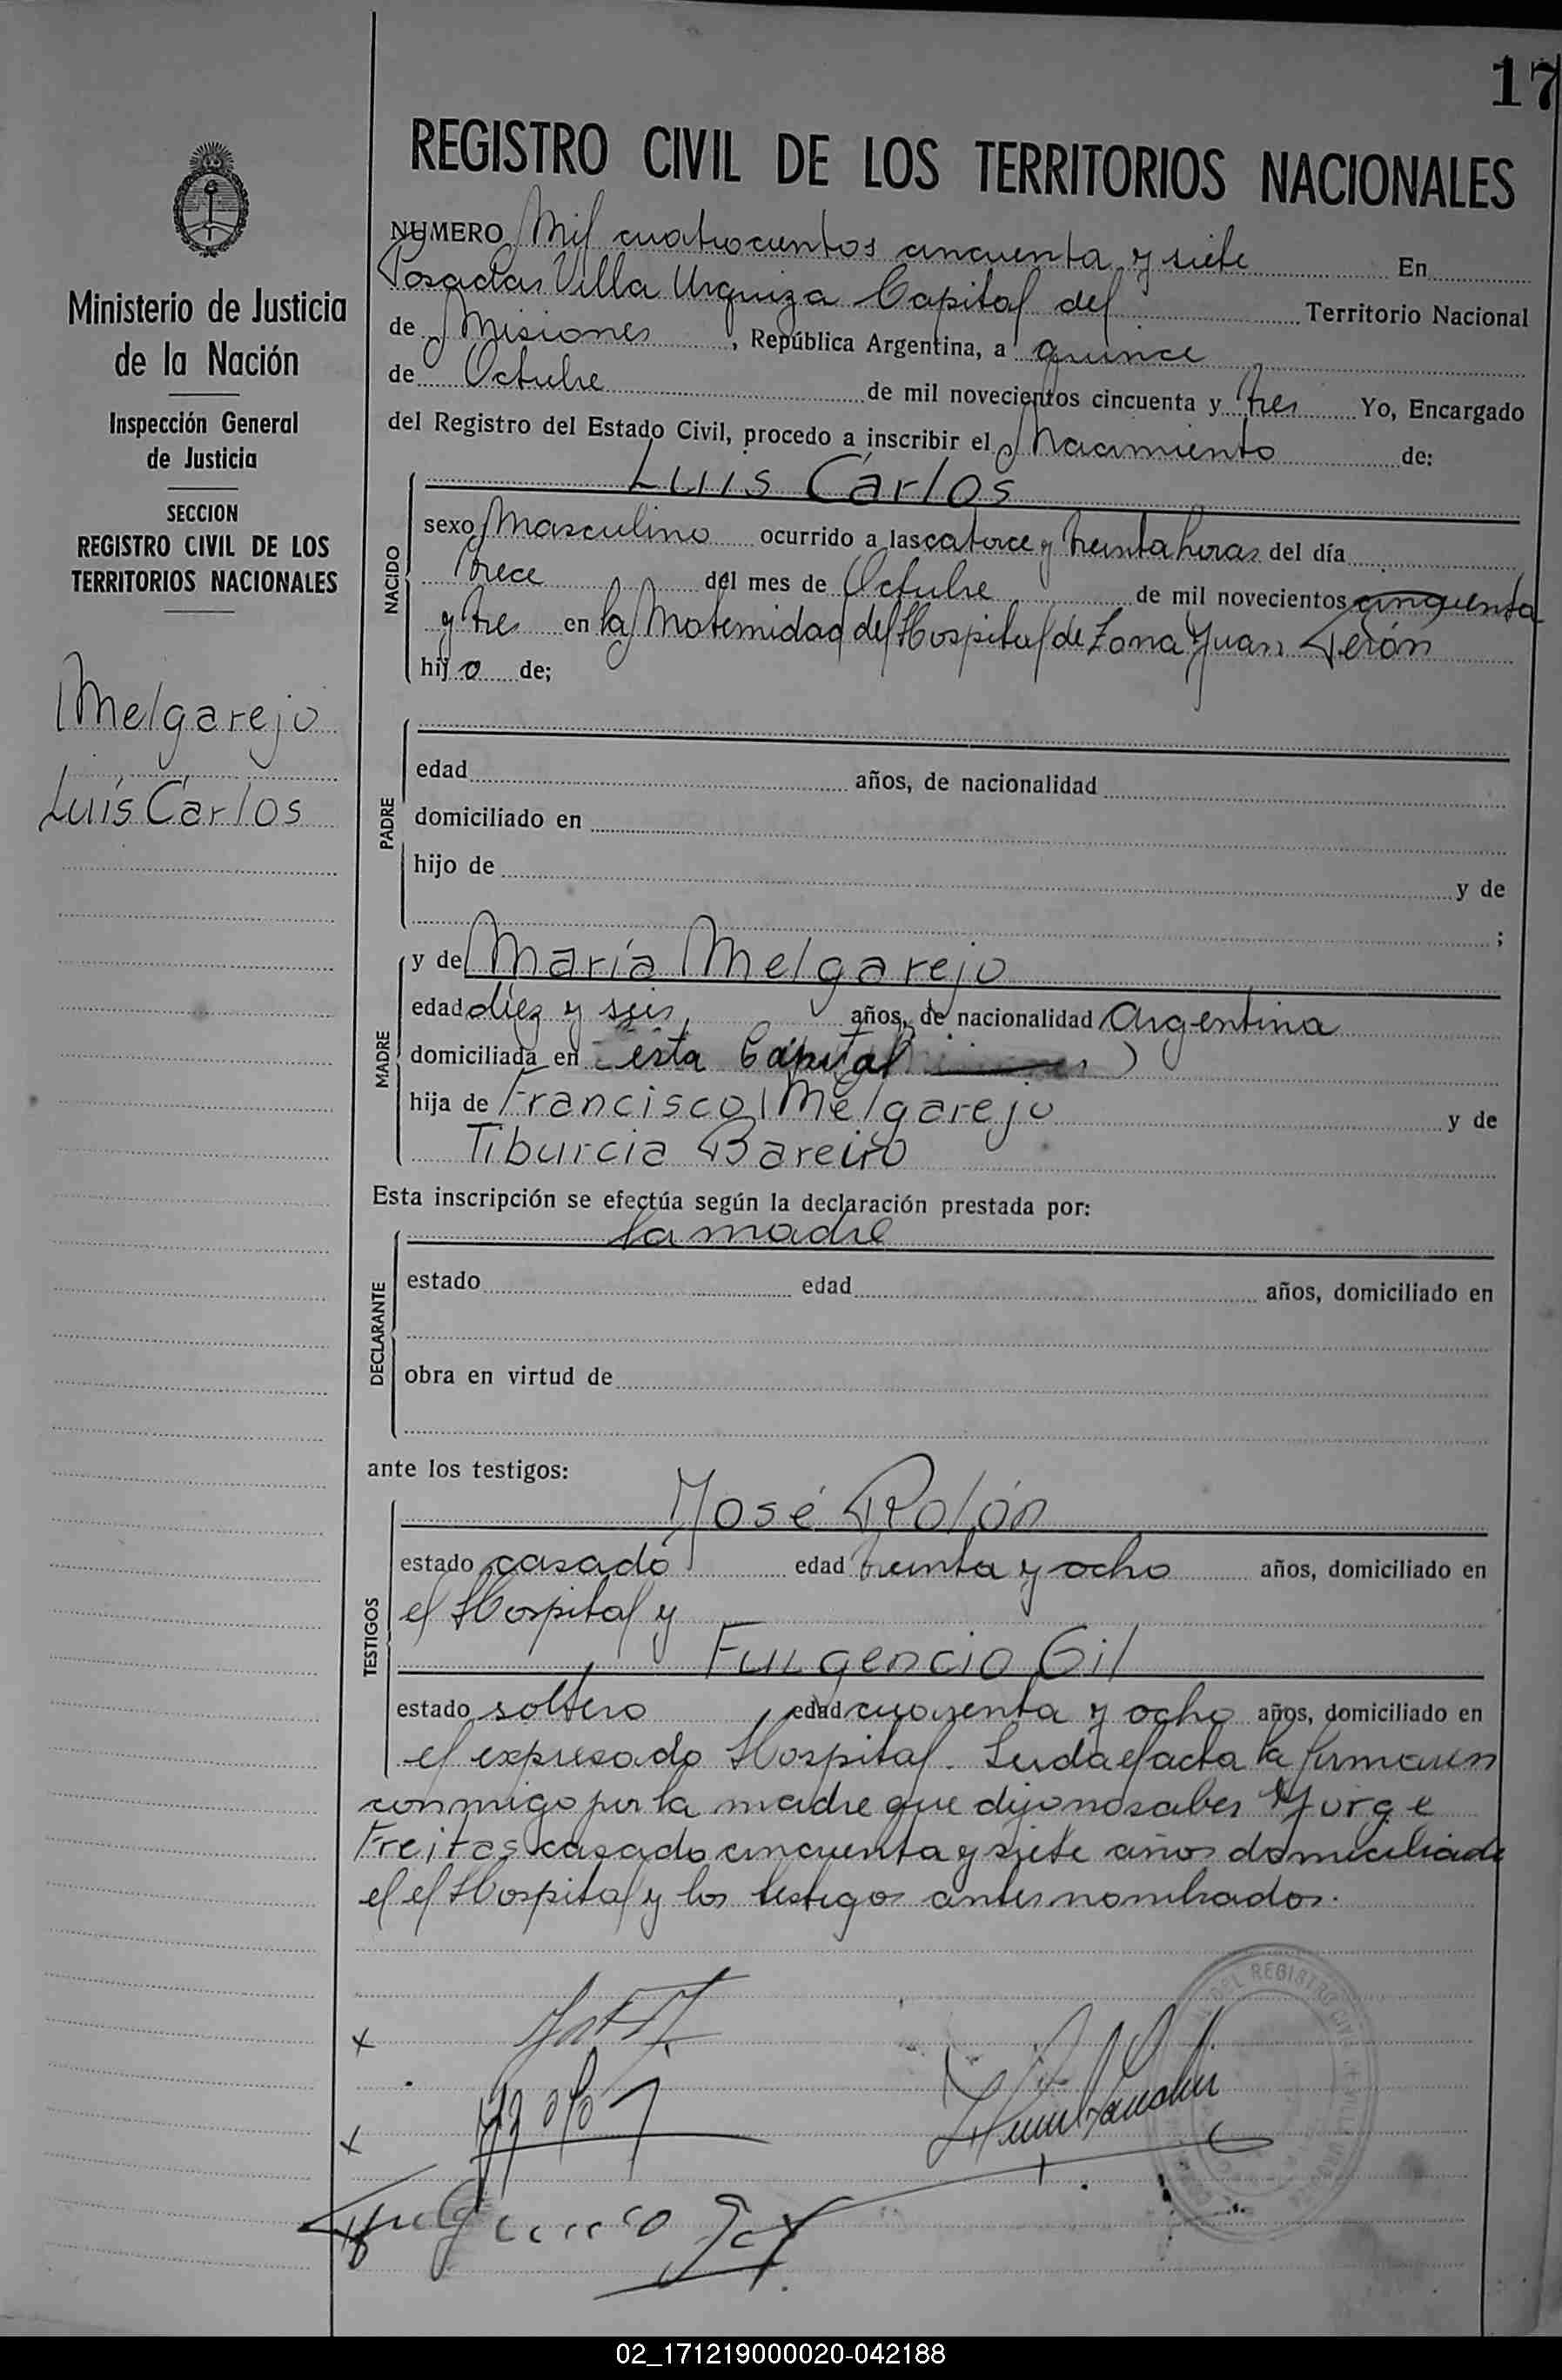 17
REGISTRO CIVIL DE LOS TERRITORIOS NACIONALES
Ministerio de Justicia
de la Nación
Inspección General
de Justicia
SECCION
REGISTRO CIVIL DE LOS
TERRITORIOS NACIONALES
Melgarejo
Luis Carlos
NUMERO Mil cuatrocientos cincuenta y siete En
Posadas Villa Urquiza Capital del Territorio Nacional
de Misiones, República Argentina, a quince
de Octubre de mil novecientos cincuenta y tres Yo, Encargado
del Registro del Estado Civil, procedo a inscribir el Nacimiento de:
NACIDO
Luis Carlos
sexo Masculino ocurrido a las catorce y treinta horas del día
trece del mes de Octubre de mil novecientos cinquenta
y tres en la Maternidad del Hospital de Zona Juan Perón
hijo de;
PADRE
edad años, de nacionalidad
domiciliado en
hijo de y de
;
MADRE
y de María Melgarejo
edad diez y seis años, de nacionalidad Argentina
domiciliada en esta Capital
hija de Francisco Melgarejo y de
Tiburcia Bareiro
Esta inscripción se efectúa según la declaración prestada por:
DECLARANTE
la madre
estado edad años, domiciliado en
obra en virtud de
ante los testigos:
TESTIGOS
José Rolón
estado casado edad treinta y ocho años, domiciliado en
el Hospital y
Fulgencio Gil
estado soltero edad cuarenta y ocho años, domiciliado en
el expresado Hospital. Leida el acta la firmaron
conmigo por la madre que dijo no saber Jorge
Freitas casado cincuenta y siete años domiciliado
el el Hospital y los testigos antes nombrados.
x
x
DEL REGISTRO CIVIL
Fulgencio Gil
02_171219000020-042188